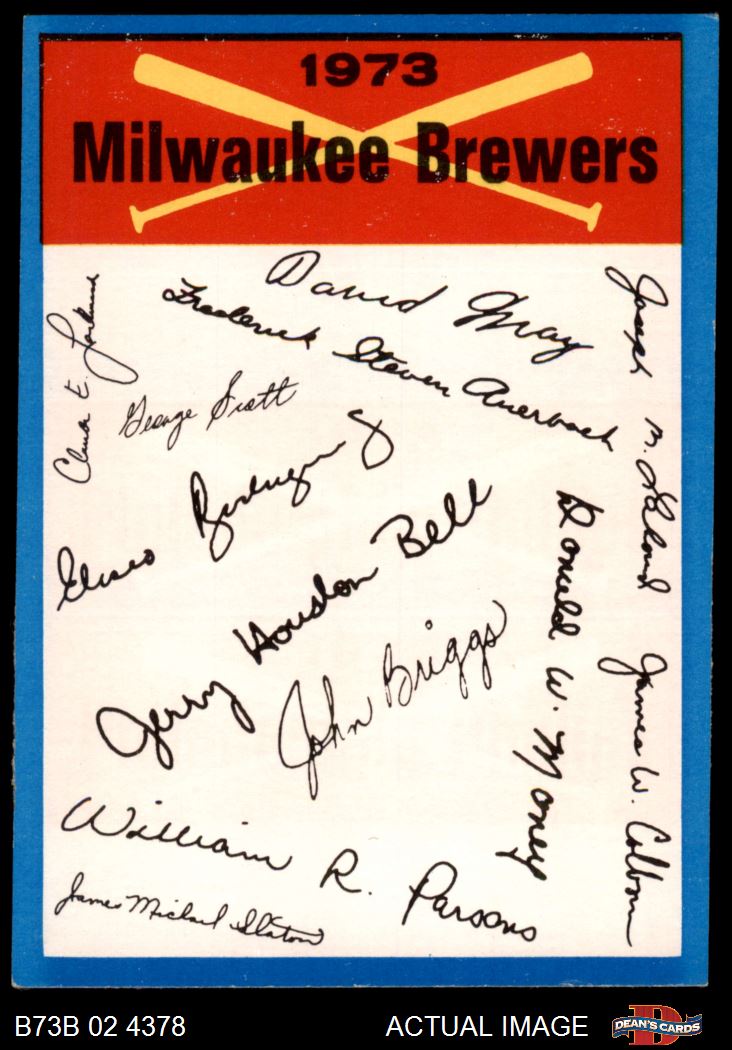 1973
Milwaukee Brewers
David May
Frederick Steven Auerbach
Joseph M. Lahoud
George Scott
Ellie Rodriguez
Jerry Houston Bell
Donald W. Money
John Briggs
James W. Colborn
William R. Parsons
James Michael Slaton
B73B 02 4378
ACTUAL IMAGE
D
DEAN'S CARDS